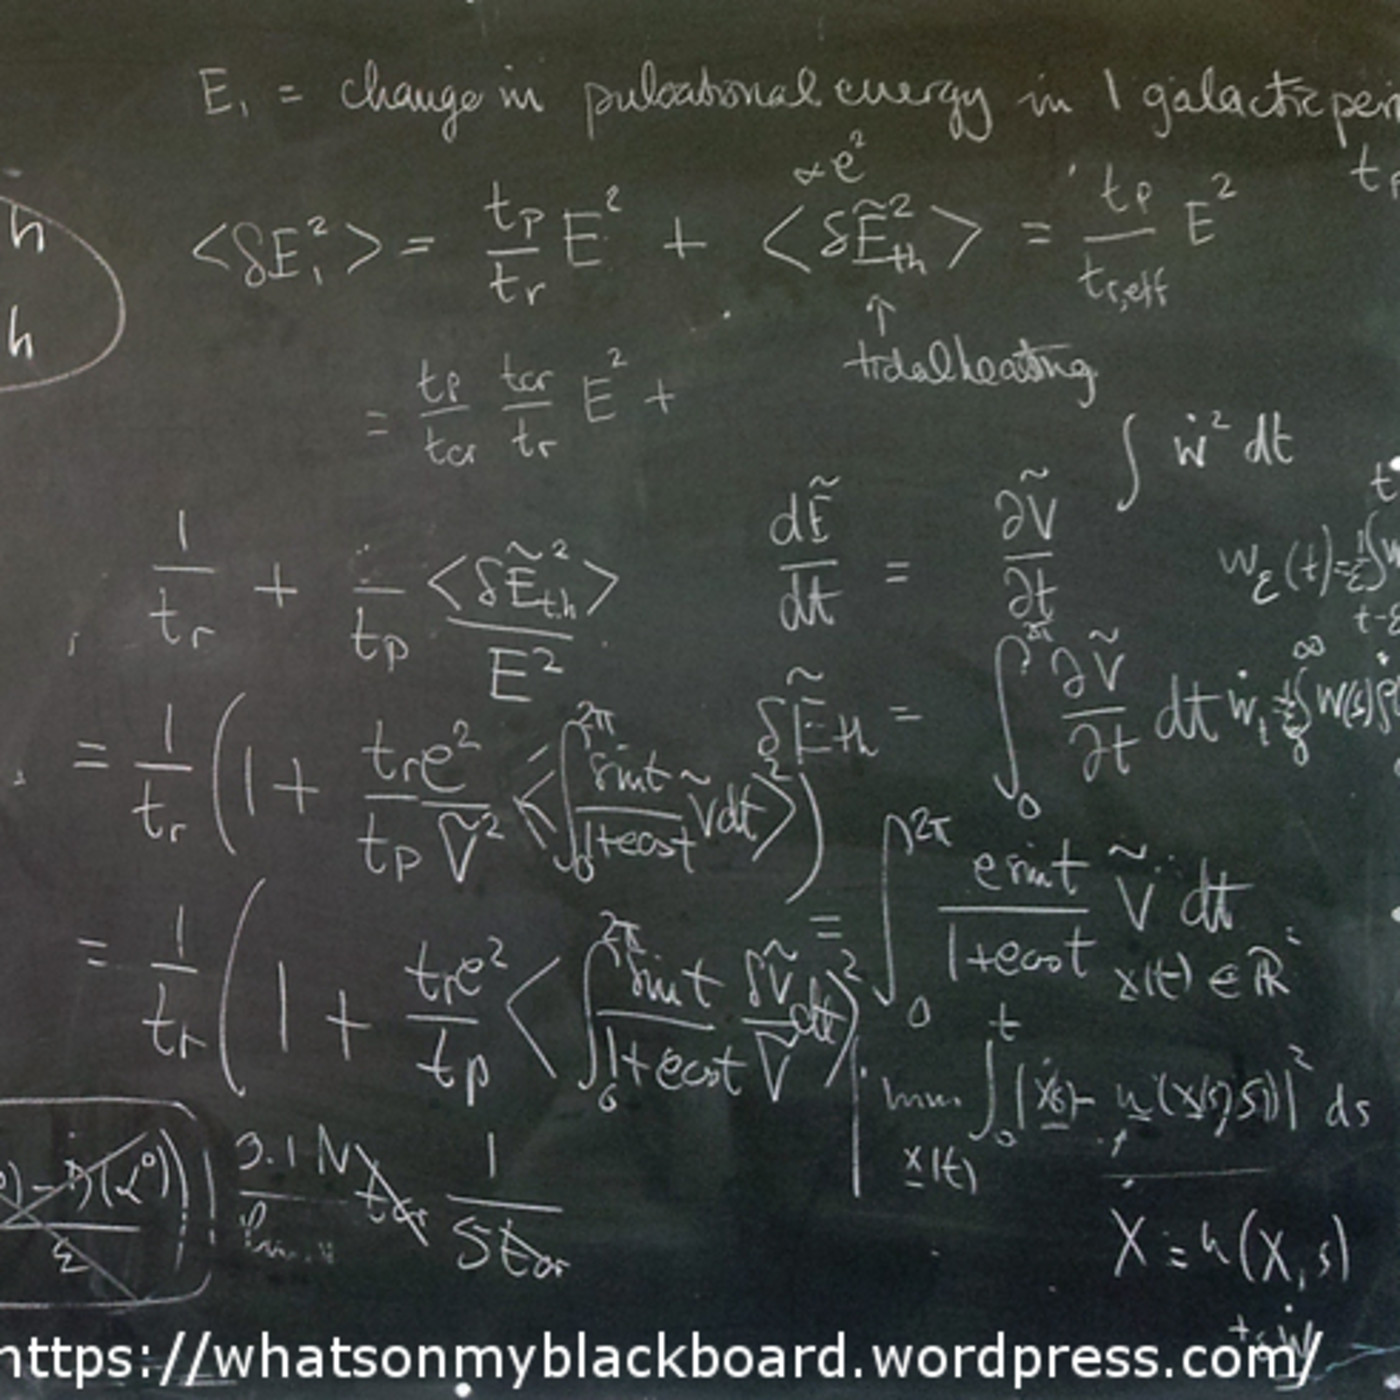 E₁ = change in pulsational energy in 1 galactic per
t_p
h
h
∝ e²
⟨δE₁²⟩ = t_p/t_r E² + ⟨δẼ²_th⟩ = t_p/t_{r,eff} E²
↑
tidal heating
= t_p/t_cr t_cr/t_r E² +
∫ ẇ² dt
1/t_r + 1/t_p ⟨δẼ²_th⟩/E²
dẼ/dt = ∂Ṽ/∂t
w_ε(t) =
δẼ_th = ∫₀^{2π} ∂Ṽ/∂t dt
= 1/t_r (1 + t_r e²/t_p Ṽ² ⟨∫₀^{2π} sin t/1+e cos t Ṽ dt⟩²)
= ∫₀^{2π} e sin t/1+e cos t Ṽ dt
x(t) ∈ ℝ
= 1/t_r (1 + t_r e²/t_p ⟨∫₀^{2π} sin t/1+e cos t δṼ/Ṽ dt⟩²
min x(t) ∫₀^t |ẋ(s) - u(x(s), s)|² ds
3.1 N t_cr 1/5t_cr
Ẋ = u(X, s)
https://whatsonmyblackboard.wordpress.com/